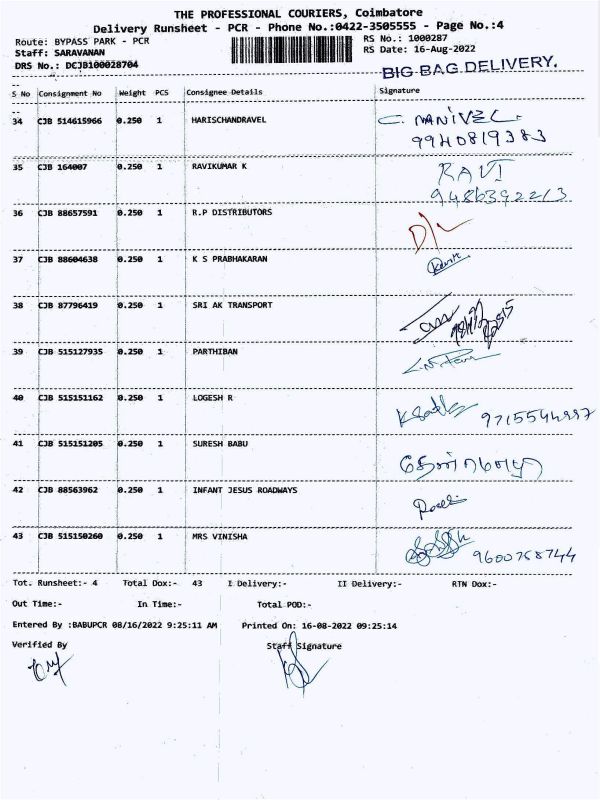 THE PROFESSIONAL COURIERS, Coimbatore
Delivery Runsheet - PCR - Phone No.:0422-3505555 - Page No.:4
Route: BYPASS PARK - PCR RS No.: 1000287
Staff: SARAVANAN RS Date: 16-Aug-2022
DRS No.: DCJB100028704
BIG BAG DELIVERY.
S No Consignment No Weight PCS Consignee Details Signature
34 CJB 514615966 0.250 1 HARISCHANDRAVEL C. MANIVEL.
9940819383
35 CJB 164007 0.250 1 RAVIKUMAR K RAVI
9486392213
36 CJB 88657591 0.250 1 R.P DISTRIBUTORS
37 CJB 88604638 0.250 1 K S PRABHAKARAN
38 CJB 87796419 0.250 1 SRI AK TRANSPORT
39 CJB 515127935 0.250 1 PARTHIBAN
40 CJB 515151162 0.250 1 LOGESH R
41 CJB 515151205 0.250 1 SURESH BABU
42 CJB 88563962 0.250 1 INFANT JESUS ROADWAYS
43 CJB 515150260 0.250 1 MRS VINISHA 9600768744
Tot. Runsheet:- 4 Total Dox:- 43 I Delivery:- II Delivery:- RTN Dox:-
Out Time:- In Time:- Total POD:-
Entered By :BABUPCR 08/16/2022 9:25:11 AM Printed On: 16-08-2022 09:25:14
Verified By Staff Signature